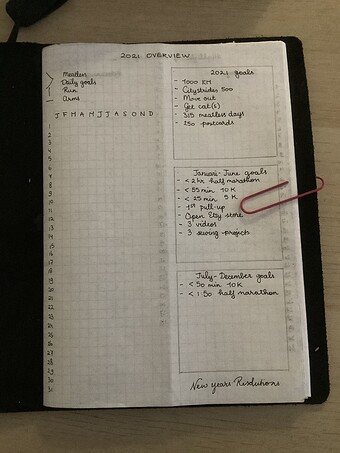 2021 OVERVIEW
Meatless
Daily goals
Run
Arms
J F M A M J J A S O N D
1
2
3
4
5
6
7
8
9
10
11
12
13
14
15
16
17
18
19
20
21
22
23
24
25
26
27
28
29
30
31
2021 goals
- 1000 KM
- Citystrides 500
- Move out
- Get cat(s)
- 315 meatless days
- 250 postcards
Januari-June goals
- < 2 hr half marathon
- < 55 min 10 K
- < 25 min 5 K
- 1st pull-up
- Open Etsy store
- 3 videos
- 3 sewing-projects
July-December goals
- < 50 min 10 K
- < 1:50 half marathon
New years Resolutions